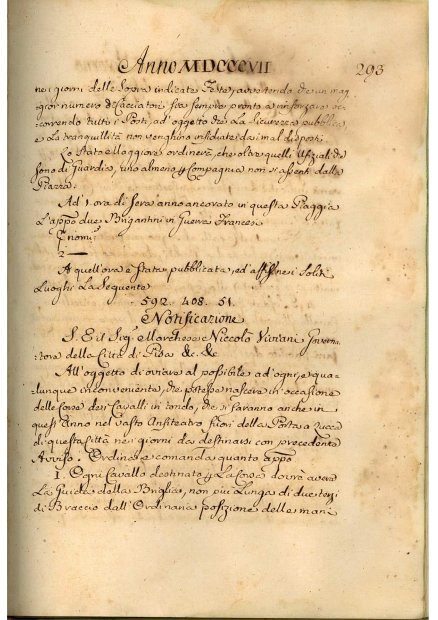 Anno MDCCCVII 293
nei giorni delle sopra indicate Feste, avvertendo che un mag
gior numero di Cacciatori sia sempre pronto a rinforzare oc
correndo tutti i Posti, ad oggetto che La Sicurezza pubblica
e La tranquillità non venghino insidiate da i mal disposti.
Lo Stato Maggiore ordinerà, che oltre quelli Ufiziali che
sono di Guardia, uno almeno p Compagnia non si assenti dalla
Piazza.
Ad 1. ora di sera anno ancorato in questa Piaggia
L'appo due Brigantini in Guerra Francesi
2
A quell'ora è stata pubblicata, ed affissa nei Soliti
Luoghi La Seguente
592. 408. 51.
Notificazione
S. E. il Sig. Marchese Niccolò Viviani Governa
tore della Città di Pisa &c. &c.
All'oggetto di ovviare al possibile ad ogni, e qua
lunque inconveniente, che potesse nascere in occasione
delle Corse dei Cavalli in tondo, che si faranno anche in
quest'Anno nel vasto Anfiteatro fuori della Porta a Lucca
di questa Città nei giorni da destinarsi con precedente
Avviso. Ordina e comanda quanto appo
I. Ogni Cavallo destinato p La Corsa dovrà avere
La Guida della Briglia, non più Lunga di due terzi
di Braccio dall'Ordinaria posizione delle mani